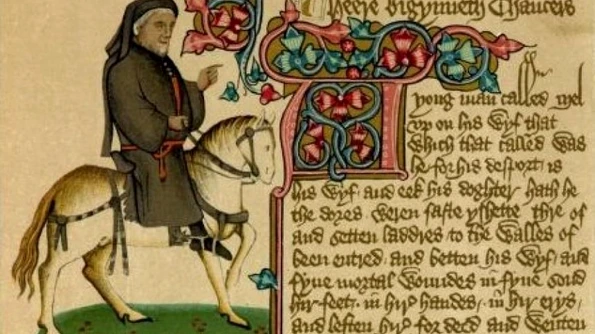 Heere bigynneth Chaucers
A yong man called Mel
vp on his wyf that
which that called was
he for his desport is
his wyf and eek his doghter hath he
the dores weren faste yshette thre of
and setten laddres to the walles of
been entred and betten his wyf and
fyue mortal woundes in fyue sond
hir feet in hir handes in hir erys
and leften hir for deed and wenten